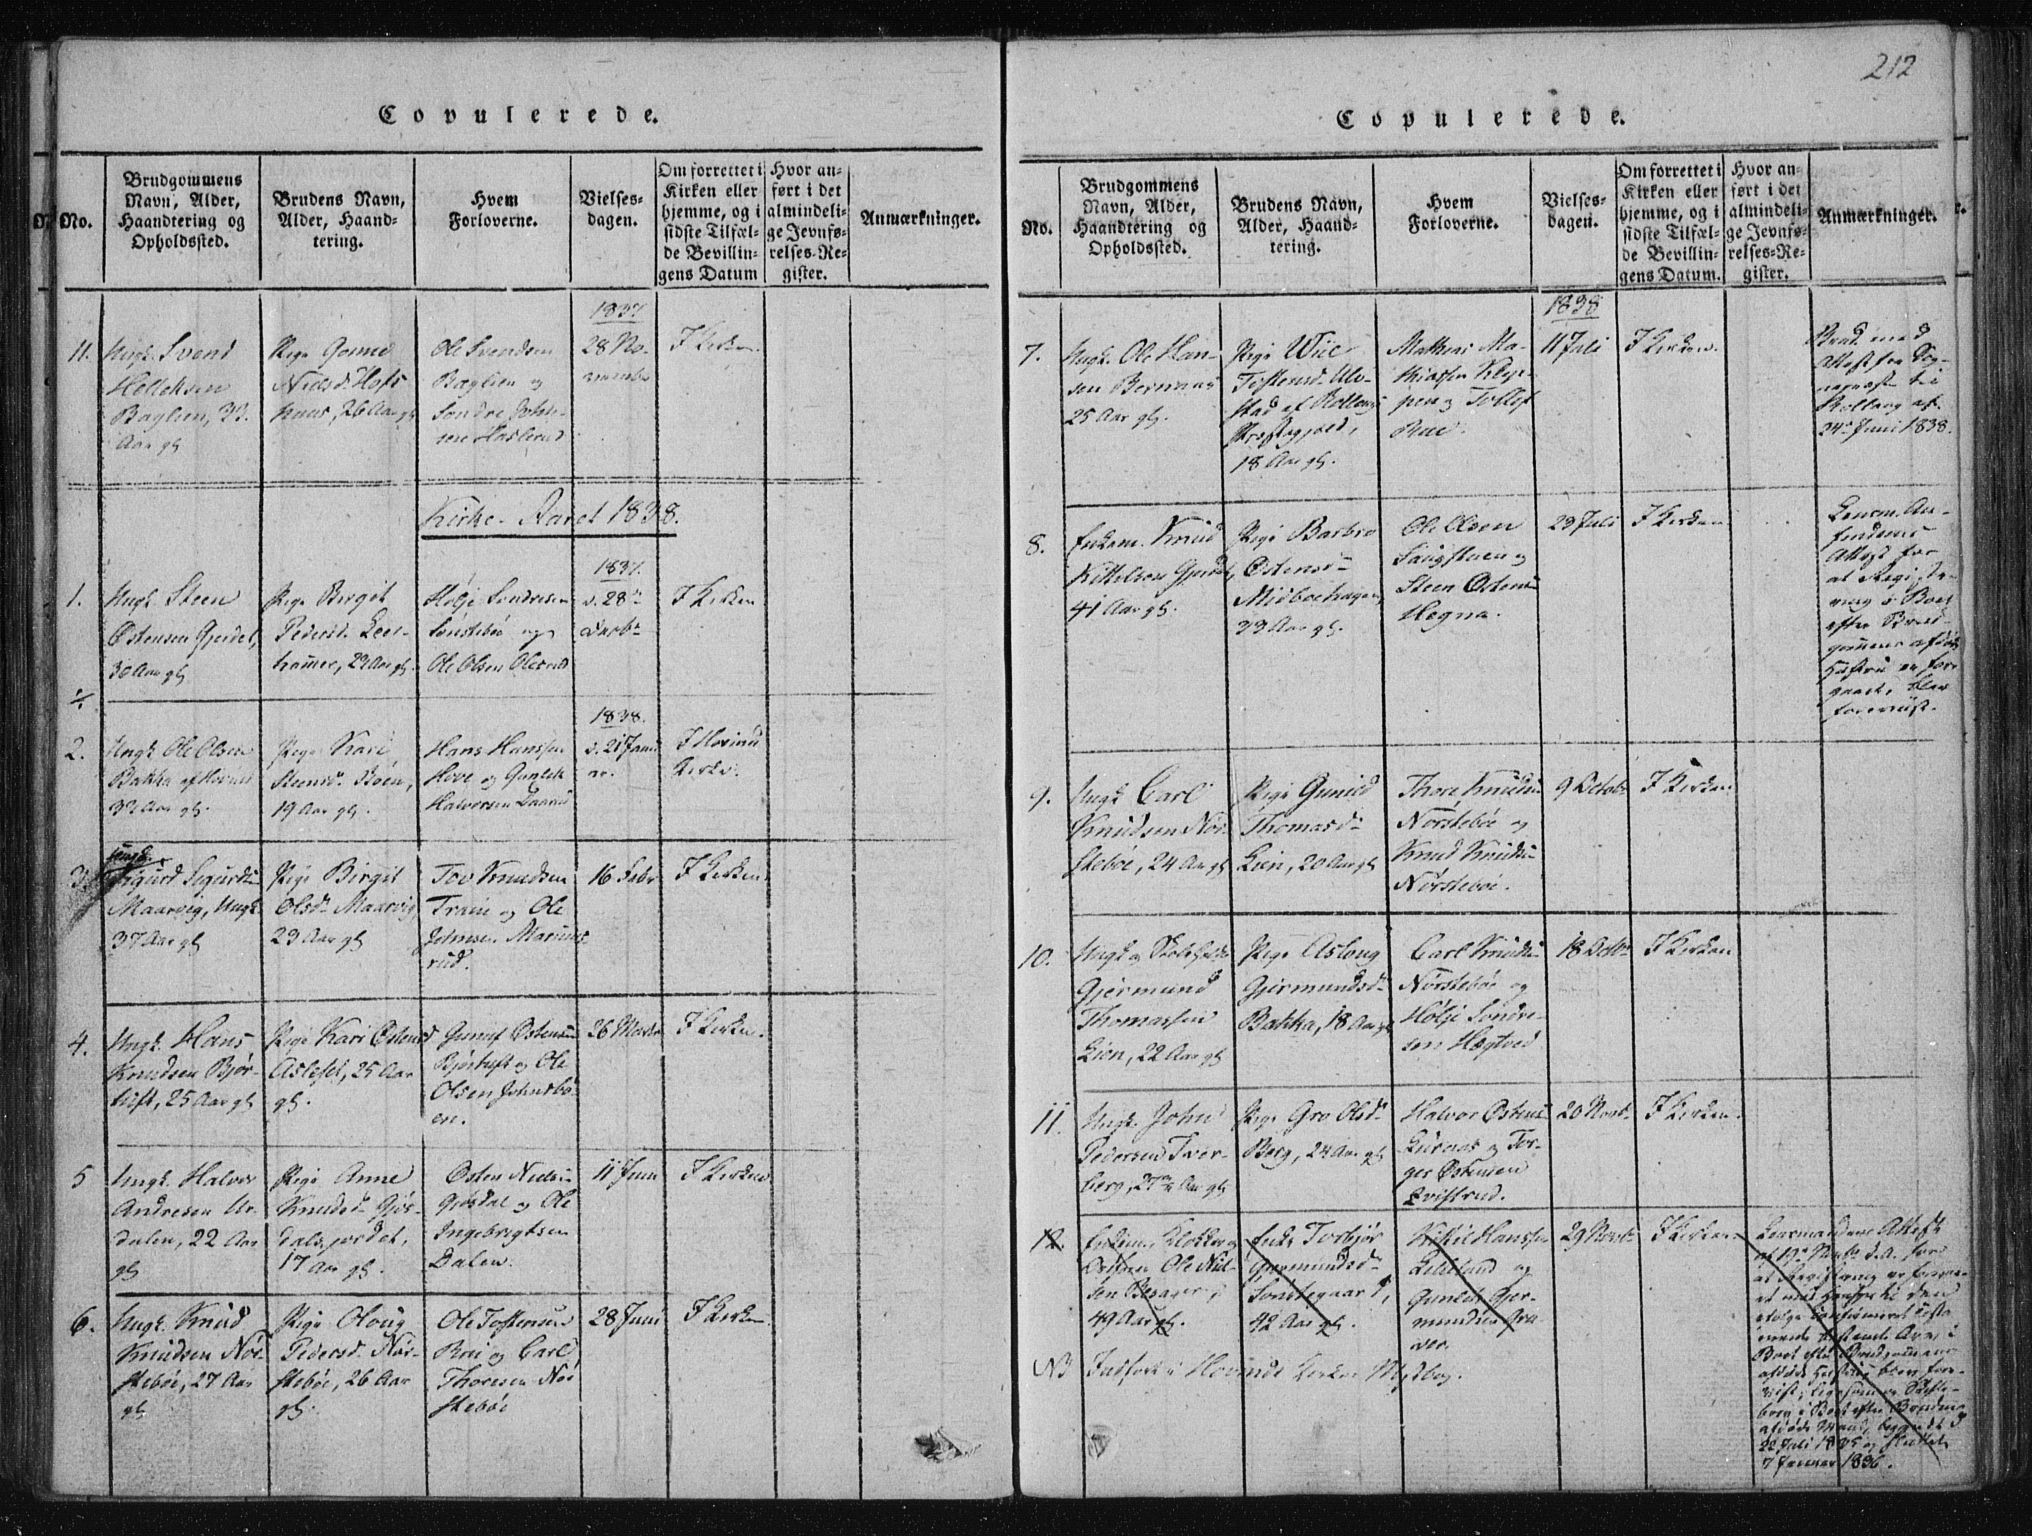 Copulerede.
No.
Brudgommens
Navn, Alder,
Haandtering og
Opholdssted.
Brudens Navn,
Alder, Haand-
tering.
Hvem
Forloverne.
Vielses-
dagen.
Om forrettet i
Kirken eller
hjemme, og i
sidste Tilfæl-
de Bevillin-
gens Datum
Hvor an-
ført i det
almindeli-
ge Jevnfø-
relses-Re-
gister.
Anmærkninger.
11.
Ungk. Svend
Helleksen
Baglien, 33.
Aar gl
Pige Gonne
Nielsd. Hofs
26 Aar gl
Ole Svendsen
Baglien og
Sondre John-
sen
1837.
28 No-
vember
I Kirken.
Kirke-Aaret 1838.
1.
Ungk Steen
Østensen Gjerdet,
30 Aar gl
Pige Birgit
Pedersd.
29 Aar gl.
Holje Sondresen
Sønstebøe og
Ole Olsen
1837.
d. 28de
Decbr
I Kirken
2.
Ungk Ole Olsen
Bakka af Hovind
33 Aar gl.
Pige Kari
Steensd. Bøen,
19 Aar gl.
Hans Hanssen
Hove og Gunlek
Halvorsen Daarud
1838.
d. 21 Janu
ar.
I Hovind
Kirke.
3.
Ungk.
Sigurd Sigurdsen
Maarvig, Ungk.
37 Aar gl
Pige Birgit
Olsd. Maarvig
23 Aar gl
Tov Knudsen
Traen og Ole
Johnsen Marius
rud.
16 Febr
I Kirken.
4.
Ungk. Hans
Knudsen Bjør-
tuft, 25 Aar gl
Pige Kari Østensd
Aslefet, 25 Aar
gl.
Gunuf Østensen
Bjørtuft og Ole
Olsen Johnsbø-
en.
26 Marts
I Kirken.
5
Ungk. Halvor
Andresen Ur-
dalen, 22 Aar
gl
Pige Anne
Knudsd Gjøs-
dalsjordet,
17 Aar gl.
Østen Nielsen
Gjøsdal og Ole
Ingebrigtsen
Dalen.
11 Juni
I Kirken
6.
Ungk. Knud
Knudsen Nør-
stebøe, 27 Aar
gl
Pige Oloug
Pedersd. Nør-
stebøe, 26 Aar
gl.
Ole Tostensen
Bøe og Carl
Thoresen Nør
stebøe
28 Juni
I Kirken
212
Copulerede.
No.
Brudgommens
Navn, Alder,
Haandtering og
Opholdssted.
Brudens Navn,
Alder, Haand-
tering.
Hvem
Forloverne.
Vielses-
dagen.
Om forrettet i
Kirken eller
hjemme, og i
sidste Tilfæl-
de Bevillin-
gens Datum.
Hvor an-
ført i det
almindeli-
ge Jevnfø-
relses-Re-
gister.
Anmærkninger.
7.
Ungk. Ole Han-
sen
25 Aar gl.
Pige Wiie
Tostensd. Ulv-
stad af Rollaugs
Præstegjæld,
18 Aar gl.
Mathias Ma-
thiassen Klep-
pen og Tollef
Rue.
1838
11 Juli
I Kirken.
Brud med
Attest fra Sog-
nepræst til
Rollaug af
24de Juni 1838.
8.
Enkem. Knud
Kittelsen Gjerdet,
41 Aar gl.
Pige Barbro
Østensd.
Midboehagen,
33 Aar gl.
Ole Olsen
Saugstuen og
Steen Østensen
Hegna.
23 Juli
I Kirken
Lensm. An-
Attest for
at Regi-
ring i Boet
efter Brud-
gommens afdøde
Hustru er fore
gaaet, blev
foreviist.
9.
Ungk Carl
Knudsen Nør-
stebøe, 24 Aar gl
Pige Gunild
Thomasd.
Lien, 20 Aar gl
Thore Knudsen
Nørstebøe og
Knud Knudsen
Nørstebøe.
9 Octobr
I Kirken
10.
Ungk og Skoleholder
Gjermund
Thomassen
Lien, 22 Aar gl
Pige Aslaug
Gjermundsd.
Bakka, 18 Aar gl
Carl Knudsen
Nørstebøe og
Holje Sondre-
sen Hægtved
18 Octbr
I Kirken
11.
Ungk. John
Pedersen Tver-
berg, 27 Aar gl
Pige Gro Olsd.
Berg, 24 Aar gl
Halvor Østensen
Lurnas og Tor-
ger Østensen
Qvistrud.
20 Novbr
I Kirken.
12.
Enkem. Klokker og
Ole Niel-
sen
49 Aar gl.
Enke Torbjør
Gjermundsd.
Sønstegaard,
42 Aar gl.
Kittil Hanssen
og
Gunlek Gjer-
mundsen Gra-
ver.
29 Novbr
I Kirken
Lensmandens Attest
af 19de Novbr d.A. for
at
Boet efter Brudgommens
afdøde Hustru blev fore-
viist, ligesom og Skifte-
brev i Boet efter Brudens
afdøde Mand, begyndt d.
22 Juli 1835 og sluttet
7 Januar 1836.
NB
i Hovinds Kirke